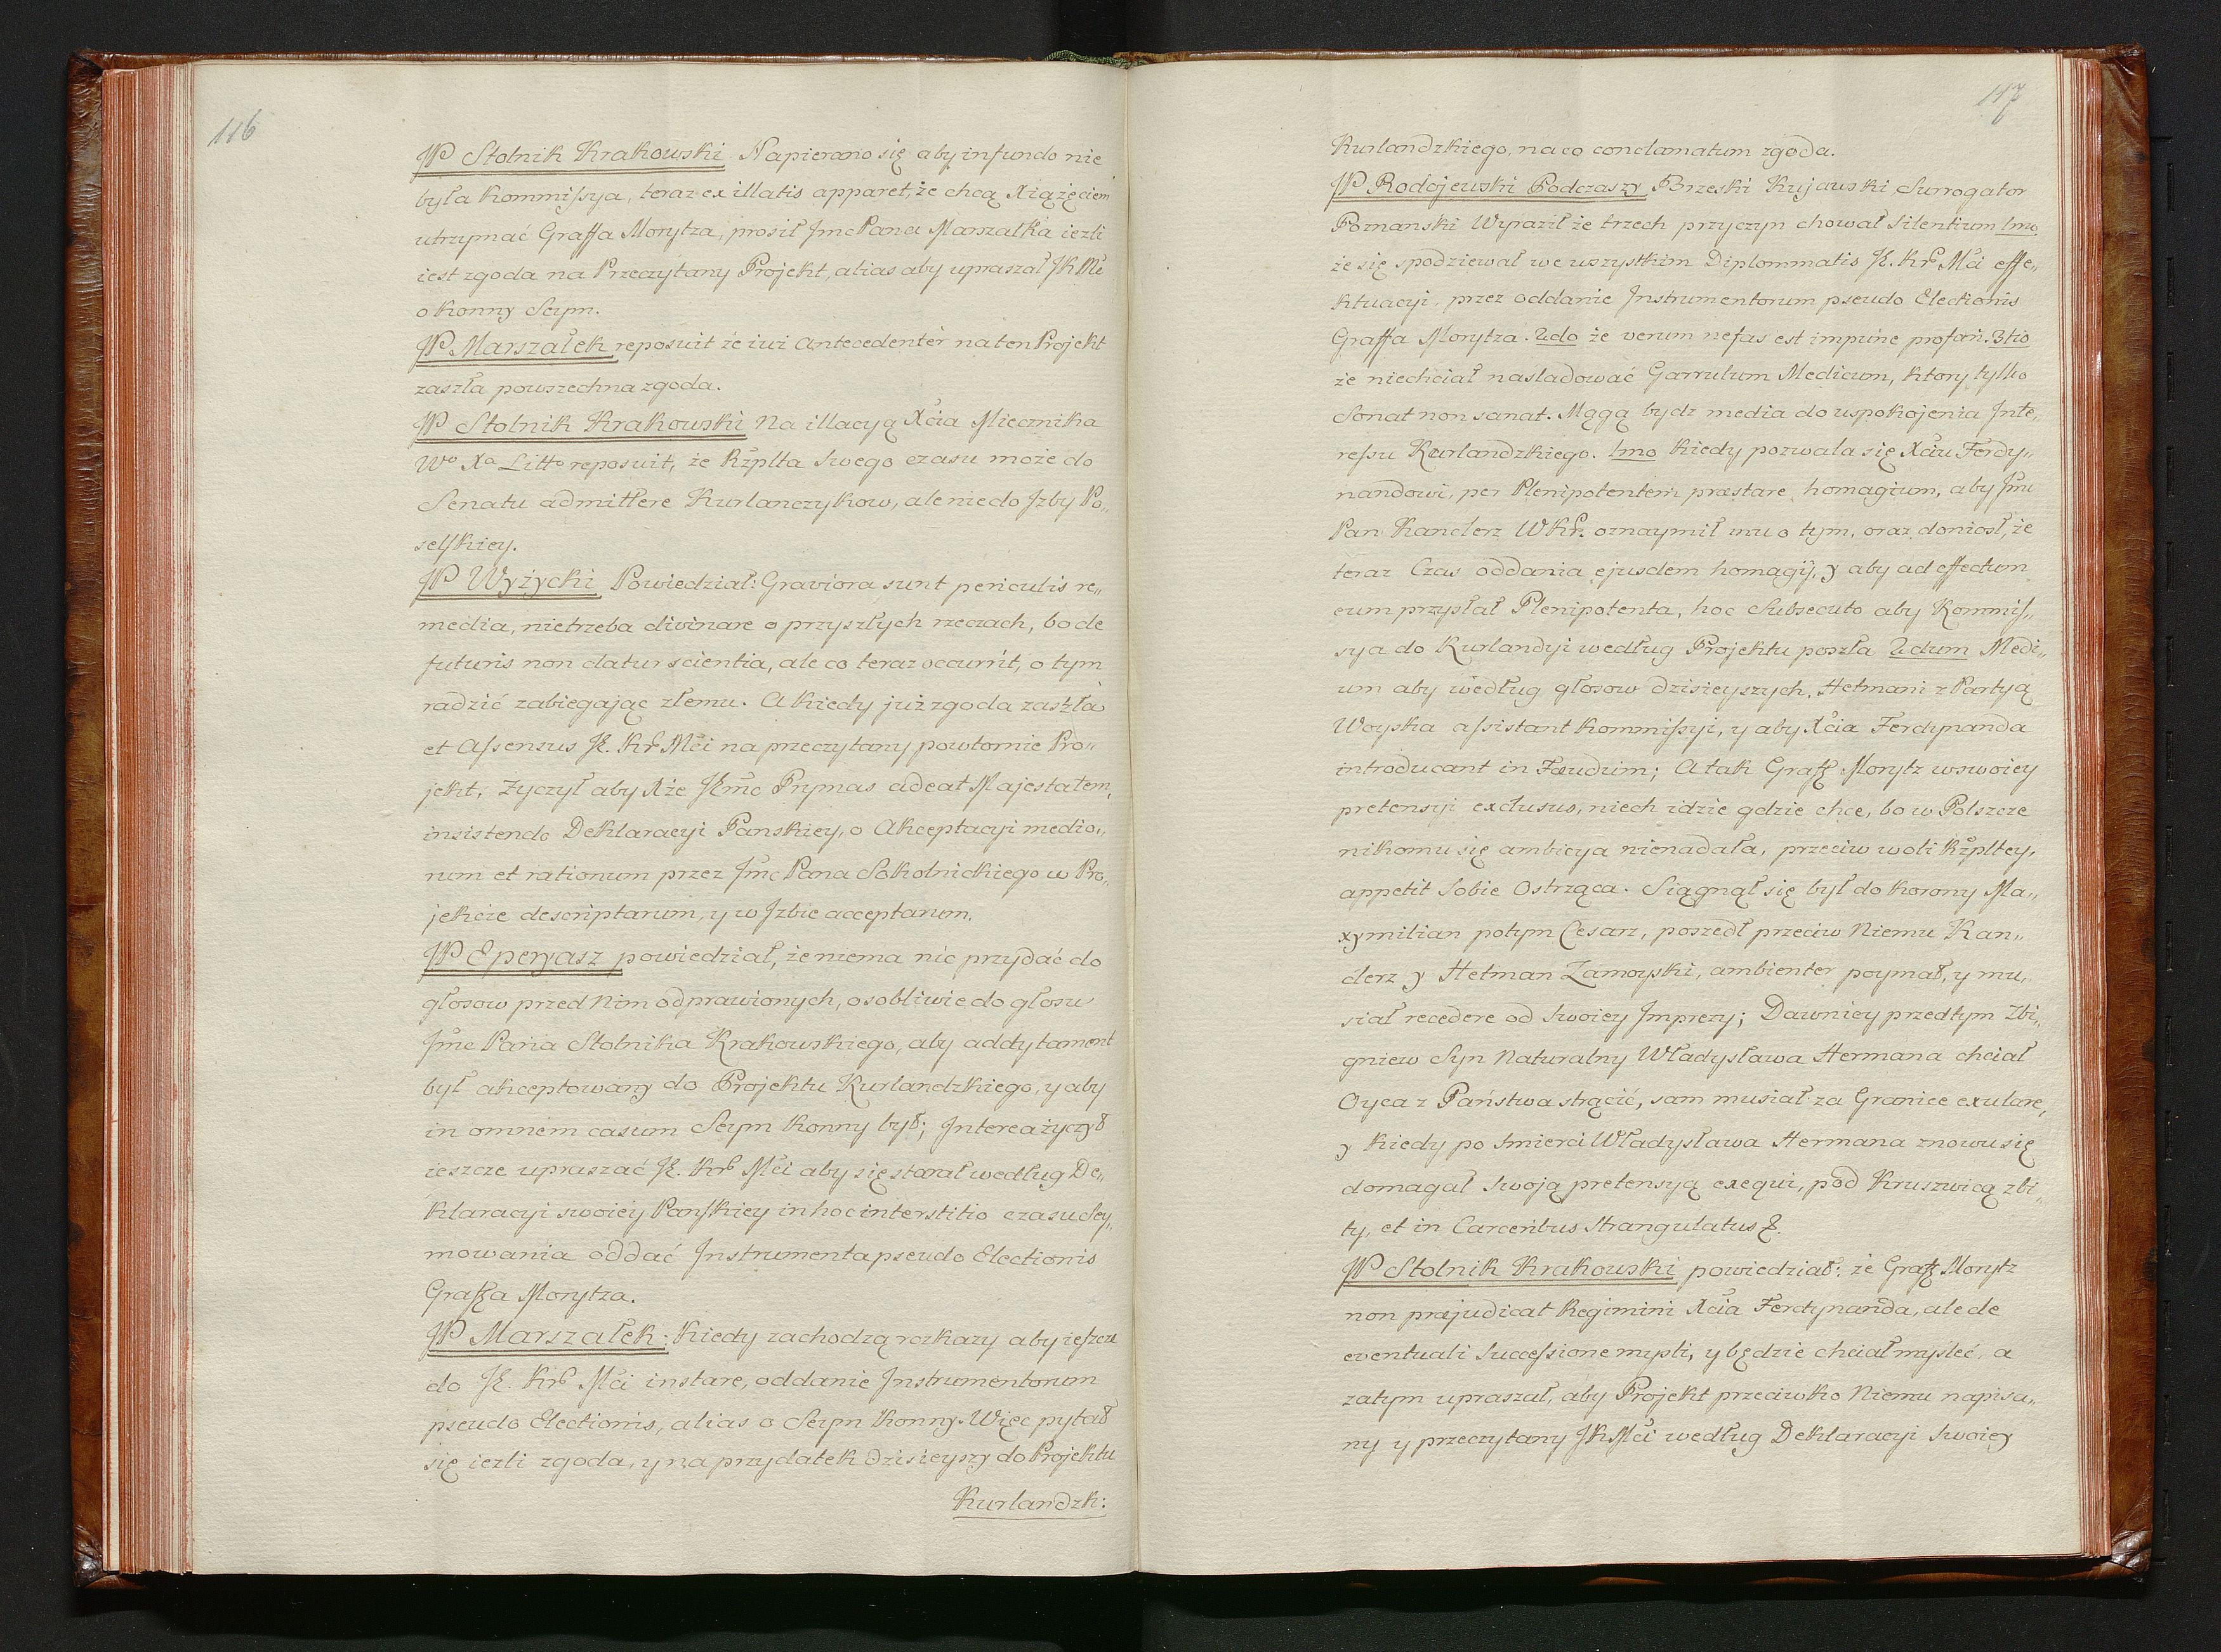 116
JP Stolnik Krakowski Napierano się aby in fundo nie
była Kommissya, teraz ex illatis apparet, że chcą Xiążęciem
utrzymać Graffa Morytza, prosił Jmc Pana Marszałka ieżli
iest zgoda na Przeczytany Projekt, alias aby upraszał JKMć
o konny Seym.
JP Marszałek reposuit że iuż Antecedenter na ten Projekt
zaszła powszechna zgoda.
JP Stolnik Krakowski Na illacyą Xcia Miecznika
Wo Xa Litto reposuit, że Rzplta swego czasu może do
Senatu admittere Kurlanczykow, ale nie do Jzby Po„
selskiey.
JP Wyżycki Powiedział: Graviora sunt periculis re„
media, nietrzeba divinare o przyszłych rzeczach, bo de
futuris non datur scientia, ale co teraz occurrit, o tym
radzić zabiegając złemu. A kiedy już zgoda zaszła
et Assensus JK. Kr Mci na przeczytany powtornie Pro„
jekt, życzył aby Xże Jmc Prymas adeat Majestatem,
insistendo Deklaracyi Panskiey, o Akceptacyi medio„
rum et rationum przez Jmc Pana Sokolnickiego w Pro„
jekcie descriptarum, y w Jzbie acceptarum.
JP Eperyasz powiedział, że niema nic przydać do
głosow przed Nim odprawionych, osobliwie do głosu
Jmc Pana Stolnika Krakowskiego, aby addytament
był akceptowany do Projektu Kurlandzkiego, y aby
in omnem casum Seym Konny był; Interea życzył
ieszcze upraszać JK. Kr Mci aby się starał według De„
klaracyi swoiey Panskiey in hoc interstitio czasu Sey„
mowania oddać Instrumenta pseudo Electionis
Graffa Morytza.
JP Marszałek: Kiedy zachodzą rozkazy aby ieszcze
do JK. Kr Mci instare, oddanie Instrumentorum
pseudo Electionis, alias o Seym Konny. Więc pytał
się ieżli zgoda, y na przydatek dzisieyszy do Projektu
Kurlandzk:
117
Kurlandzkiego, na co conclamatum zgoda.
JP Radojewski Podczaszy Brzeski Kujawski Surrogator
Poznanski Wyraził że trzech przyczyn chował Silentium 1mo
że się spodziewał we wszystkim Diplommatis JK. Kr Mci effe„
ktuacyi, przez oddanie Instrumentorum pseudo Electionis
Graffa Morytza. 2do że verum nefas est impune profari. 3tio
że niechciał nasladować Garrulum Medicum, ktory tylko
Sonat non sanat. Mogą bydz media do uspokojenia Inte„
ressu Kurlandzkiego. 1mo Kiedy pozwala się Xciu Ferdy„
nandowi, per Plenipotentem præstare homagium, aby Jmc
Pan Kanclerz WKr. oznaymił mu o tym, oraz doniosł, że
teraz Czas oddania ejusdem homagij, y aby ad effectum
eum przysłał Plenipotenta, hoc Subsecuto aby Kommis„
sya do Kurlandyi według Projektu poszła 2dum Medi„
um aby według głosow dzisieyszych, Hetmani z Partyą
Woyska assistant Kommissyi, y aby Xcia Ferdynanda
introducant in Fæudum; A tak Graff Morytz w swoiey
pretensyi exclusus, niech idzie gdzie chce, bo w Polszcze
nikomu się ambicya nienadała, przeciw woli Rzpltey,
appetit Sobie Ostrząca. Siągnął się był do Korony Ma„
xymilian potym Cesarz, poszedł przeciw Niemu Kan„
clerz y Hetman Zamoyski, ambienter poymał, y mu„
siał recedere od swoiey Imprezy; Dawniey przedtym Zbi„
gniew Syn Naturalny Władysława Hermana chciał
Oyca z Państwa strącić, sam musiał za Granice exulare,
y kiedy po smierci Władysława Hermana znowu się
domagał swoją pretensyą exequi, pod Kruszwicą zbi„
ty, et in Carceribus strangulatus &.
JP Stolnik Krakowski powiedział: że Graff Morytz
non præjudicat Regimini Xcia Ferdynanda, ale de
eventuali Successione mysli, y będzie chciał mysleć, a
zatym upraszał, aby Projekt przeciwko Niemu napisa„
ny y przeczytany JKMci według Deklaracyi swoiey